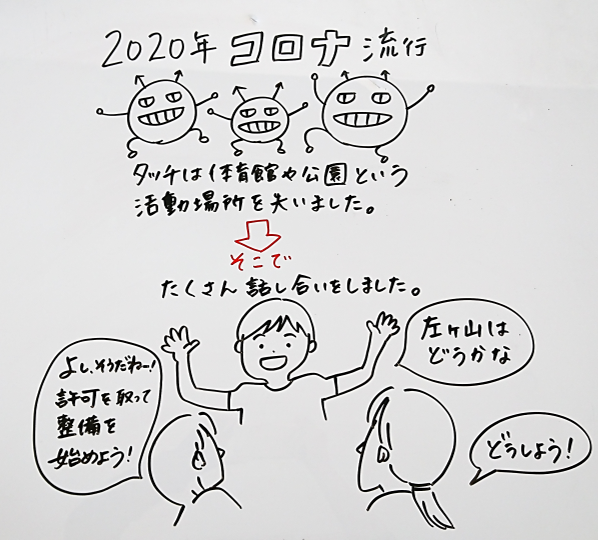 2020年 コロナ 流行
タッチは体育館や公園という
活動場所を失いました。
そこで
たくさん話し合いをしました。
左ヶ山は
どうかな
よし、そうだねー!
許可を取って
整備を
始めよう!
どうしよう!